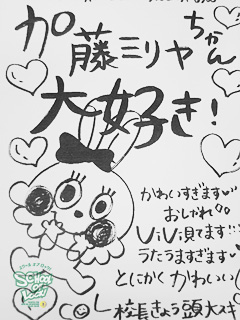 加藤ミリヤちゃん
大好き!
かわいすぎます
おしゃれ
ViVi見てます!!
うたうますぎます
とにかくかわいい
校長きょう頭大スキ
SCHOOL OF LOCK!